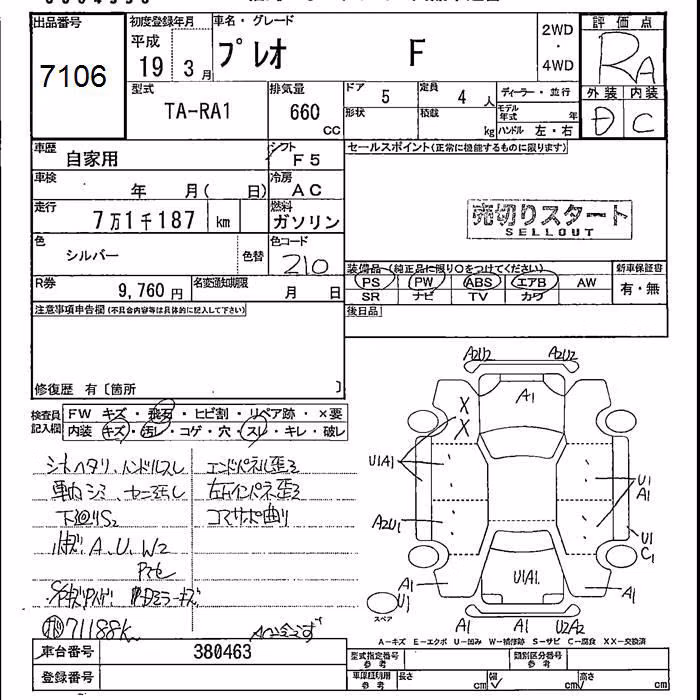 出品番号
7106
初度登録年月
平成
19 3月
車名・グレード
プレオ F
2WD
・
4WD
評価点
RA
外装 内装
D C
型式
TA-RA1
排気量
660
cc
ドア 5
定員 4 人
形状
積載 kg
ディーラー・並行
モデル
年式 年
ハンドル 左・右
車歴
自家用
シフト
F5
セールスポイント(正常に機能するものに限ります)
車検
年 月( 日)
冷房
AC
走行
7万1千187 km
燃料
ガソリン
売切りスタート
SELLOUT
色
シルバー
色替
色コード
210
R券
9,760円
名変通知期限
月 日
装備品(純正品に限り○をつけてください)
PS PW ABS エアB AW
SR ナビ TV カワ
新車保証書
有・無
注意事項申告欄(不具合内容等は具体的に記入して下さい)
後日品
修復歴 有〔箇所 〕
検査員
記入欄
FW キズ・飛石・ヒビ割・リペア跡・×要
内装 キズ・汚レ・コゲ・穴・スレ・キレ・破レ
シートヘタリ、ハンドルスレ
エンドパネル歪ミ
下廻りS2
コアサポ曲り
小キズ、A、U、W2
71188K
A2U2 A2U2
A1
X
X
U1A1
U1
A1
A2U1
U1
C1
U1A1
A1
A1
U1
スペア
A1 A1 U2A2
A-キズ E-エクボ U-凹み W-補修跡 S-サビ C-腐食 XX-交換済
車台番号
380463
型式指定番号
参考
類別区分番号
参考
登録番号
車庫証明用
参考
長さ cm
幅 cm
高さ cm